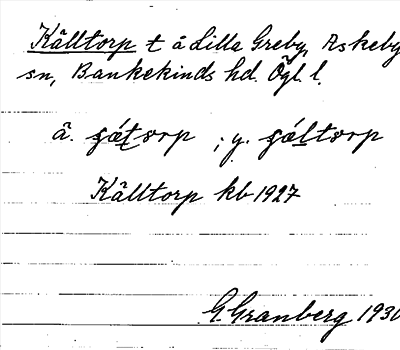 Källtorp t å Lilla Greby, Askeby
sn, Bankekinds hd. Ögl. l.
ä. ; y.
Källtorp kb 1927
G. Granberg 1930